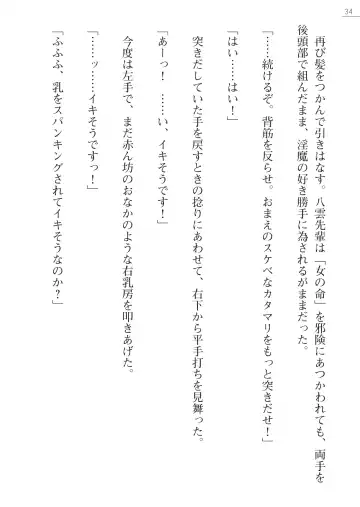 34
再び髪をつかんで引きはなす。八雲先輩は「女の命」を邪険にあつかわれても、両手を
後頭部で組んだまま、淫魔の好き勝手に為されるがままだった。
「……続けるぞ。背筋を反らせ。おまえのスケベなカタマリをもっと突きだせ！」
「はい……はい！」
突きだしていた手を戻すときの捻りにあわせて、右下から平手打ちを見舞った。
「あーっ！　……い、イキそうです！」
今度は左手で、まだ赤ん坊のおなかのような右乳房を叩きあげた。
「……ッ……イキそうですっ！」
「ふふふ、乳をスパンキングされてイキそうなのか？」